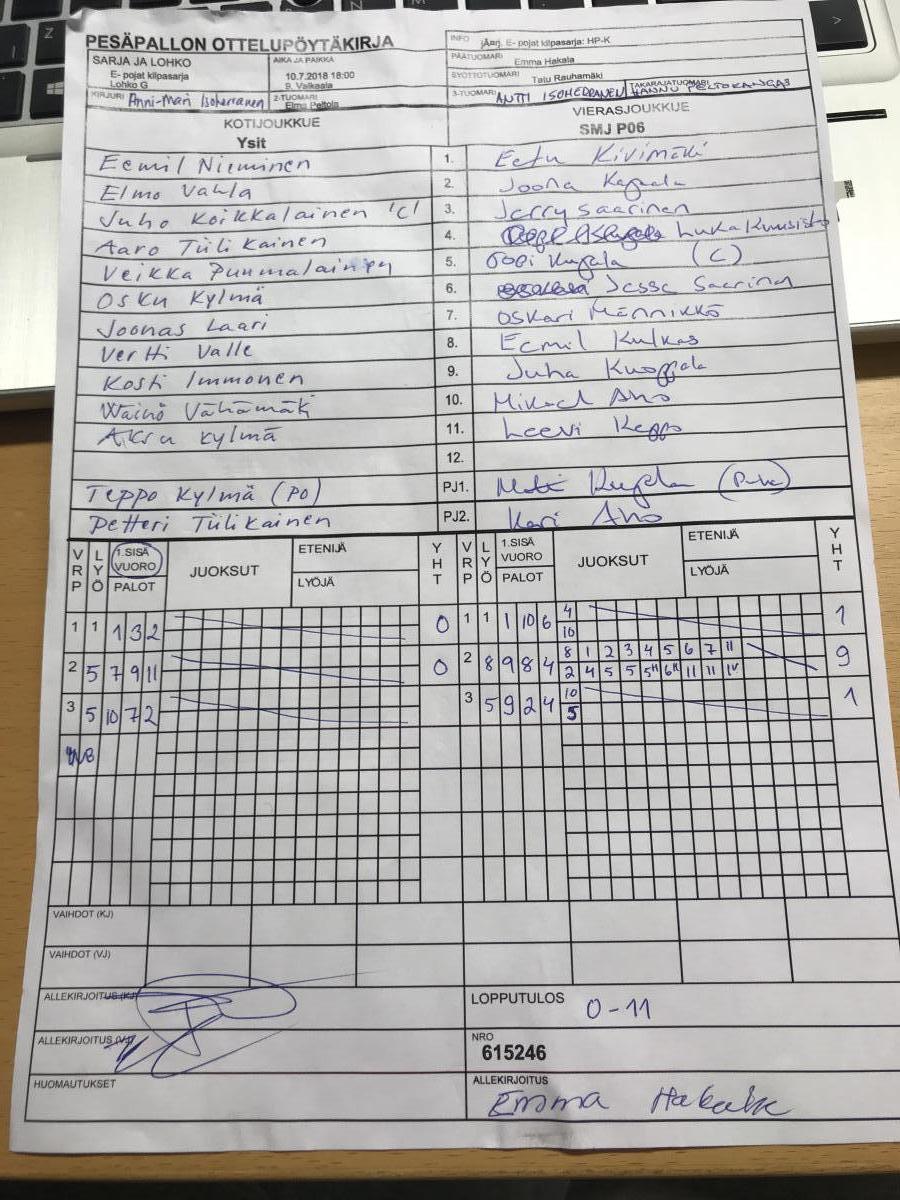 PESÄPALLON OTTELUPÖYTÄKIRJA
INFO jÄnj. E- pojat kilpasarja: HP-K
PÄÄTUOMARI Emma Hakala
SARJA JA LOHKO
E- pojat kilpasarja
Lohko G
AIKA JA PAIKKA
10.7.2018 18:00
9. Valkeala
SYÖTTÖTUOMARI Tatu Rauhamäki
KIRJURI Anni-Mari Isoherranen
2-TUOMARI Elma Peltola
3-TUOMARI ANTTI ISOHERRANEN
TAKARAJATUOMARI HANNU PELTOKANGAS
KOTIJOUKKUE
Ysit
VIERASJOUKKUE
SMJ P06
Eemil Nieminen 1. Eetu Kivimäki
Elmo Vahla 2. Joona
Juho Koikkalainen 'C' 3. Jerry Saarinen
Aaro Tiilikainen 4. Luka Kuusisto
Veikka Puumalainen 5. (C)
Osku Kylmä 6. Jesse Saarinen
Joonas Laari 7. Oskari Männikkö
Vertti Valle 8. Eemil Kulkas
Kosti Immonen 9. Juha
Wäinö Vähämäki 10. Mikael Aho
Aksu Kylmä 11. Leevi Keppo
12.
Teppo Kylmä (PO) PJ1.
Petteri Tiilikainen PJ2. Kari Aho
VRP LYÖ 1.SISÄ VUORO PALOT JUOKSUT ETENIJÄ LYÖJÄ YHT VRP LYÖ 1.SISÄ VUORO PALOT JUOKSUT ETENIJÄ LYÖJÄ YHT
1 1 1 3 2 0 1 1 1 10 6 4 1
10
2 5 7 9 11 0 2 8 9 8 4 8 1 2 3 4 5 6 7 11 9
2 4 5 5 5H 6H 11 11 1V
3 5 10 7 2 3 5 9 2 4 10 1
5
VAIHDOT (KJ)
VAIHDOT (VJ)
ALLEKIRJOITUS (KJ)
LOPPUTULOS 0-11
ALLEKIRJOITUS (VJ)
NRO
615246
HUOMAUTUKSET
ALLEKIRJOITUS
Emma Hakala